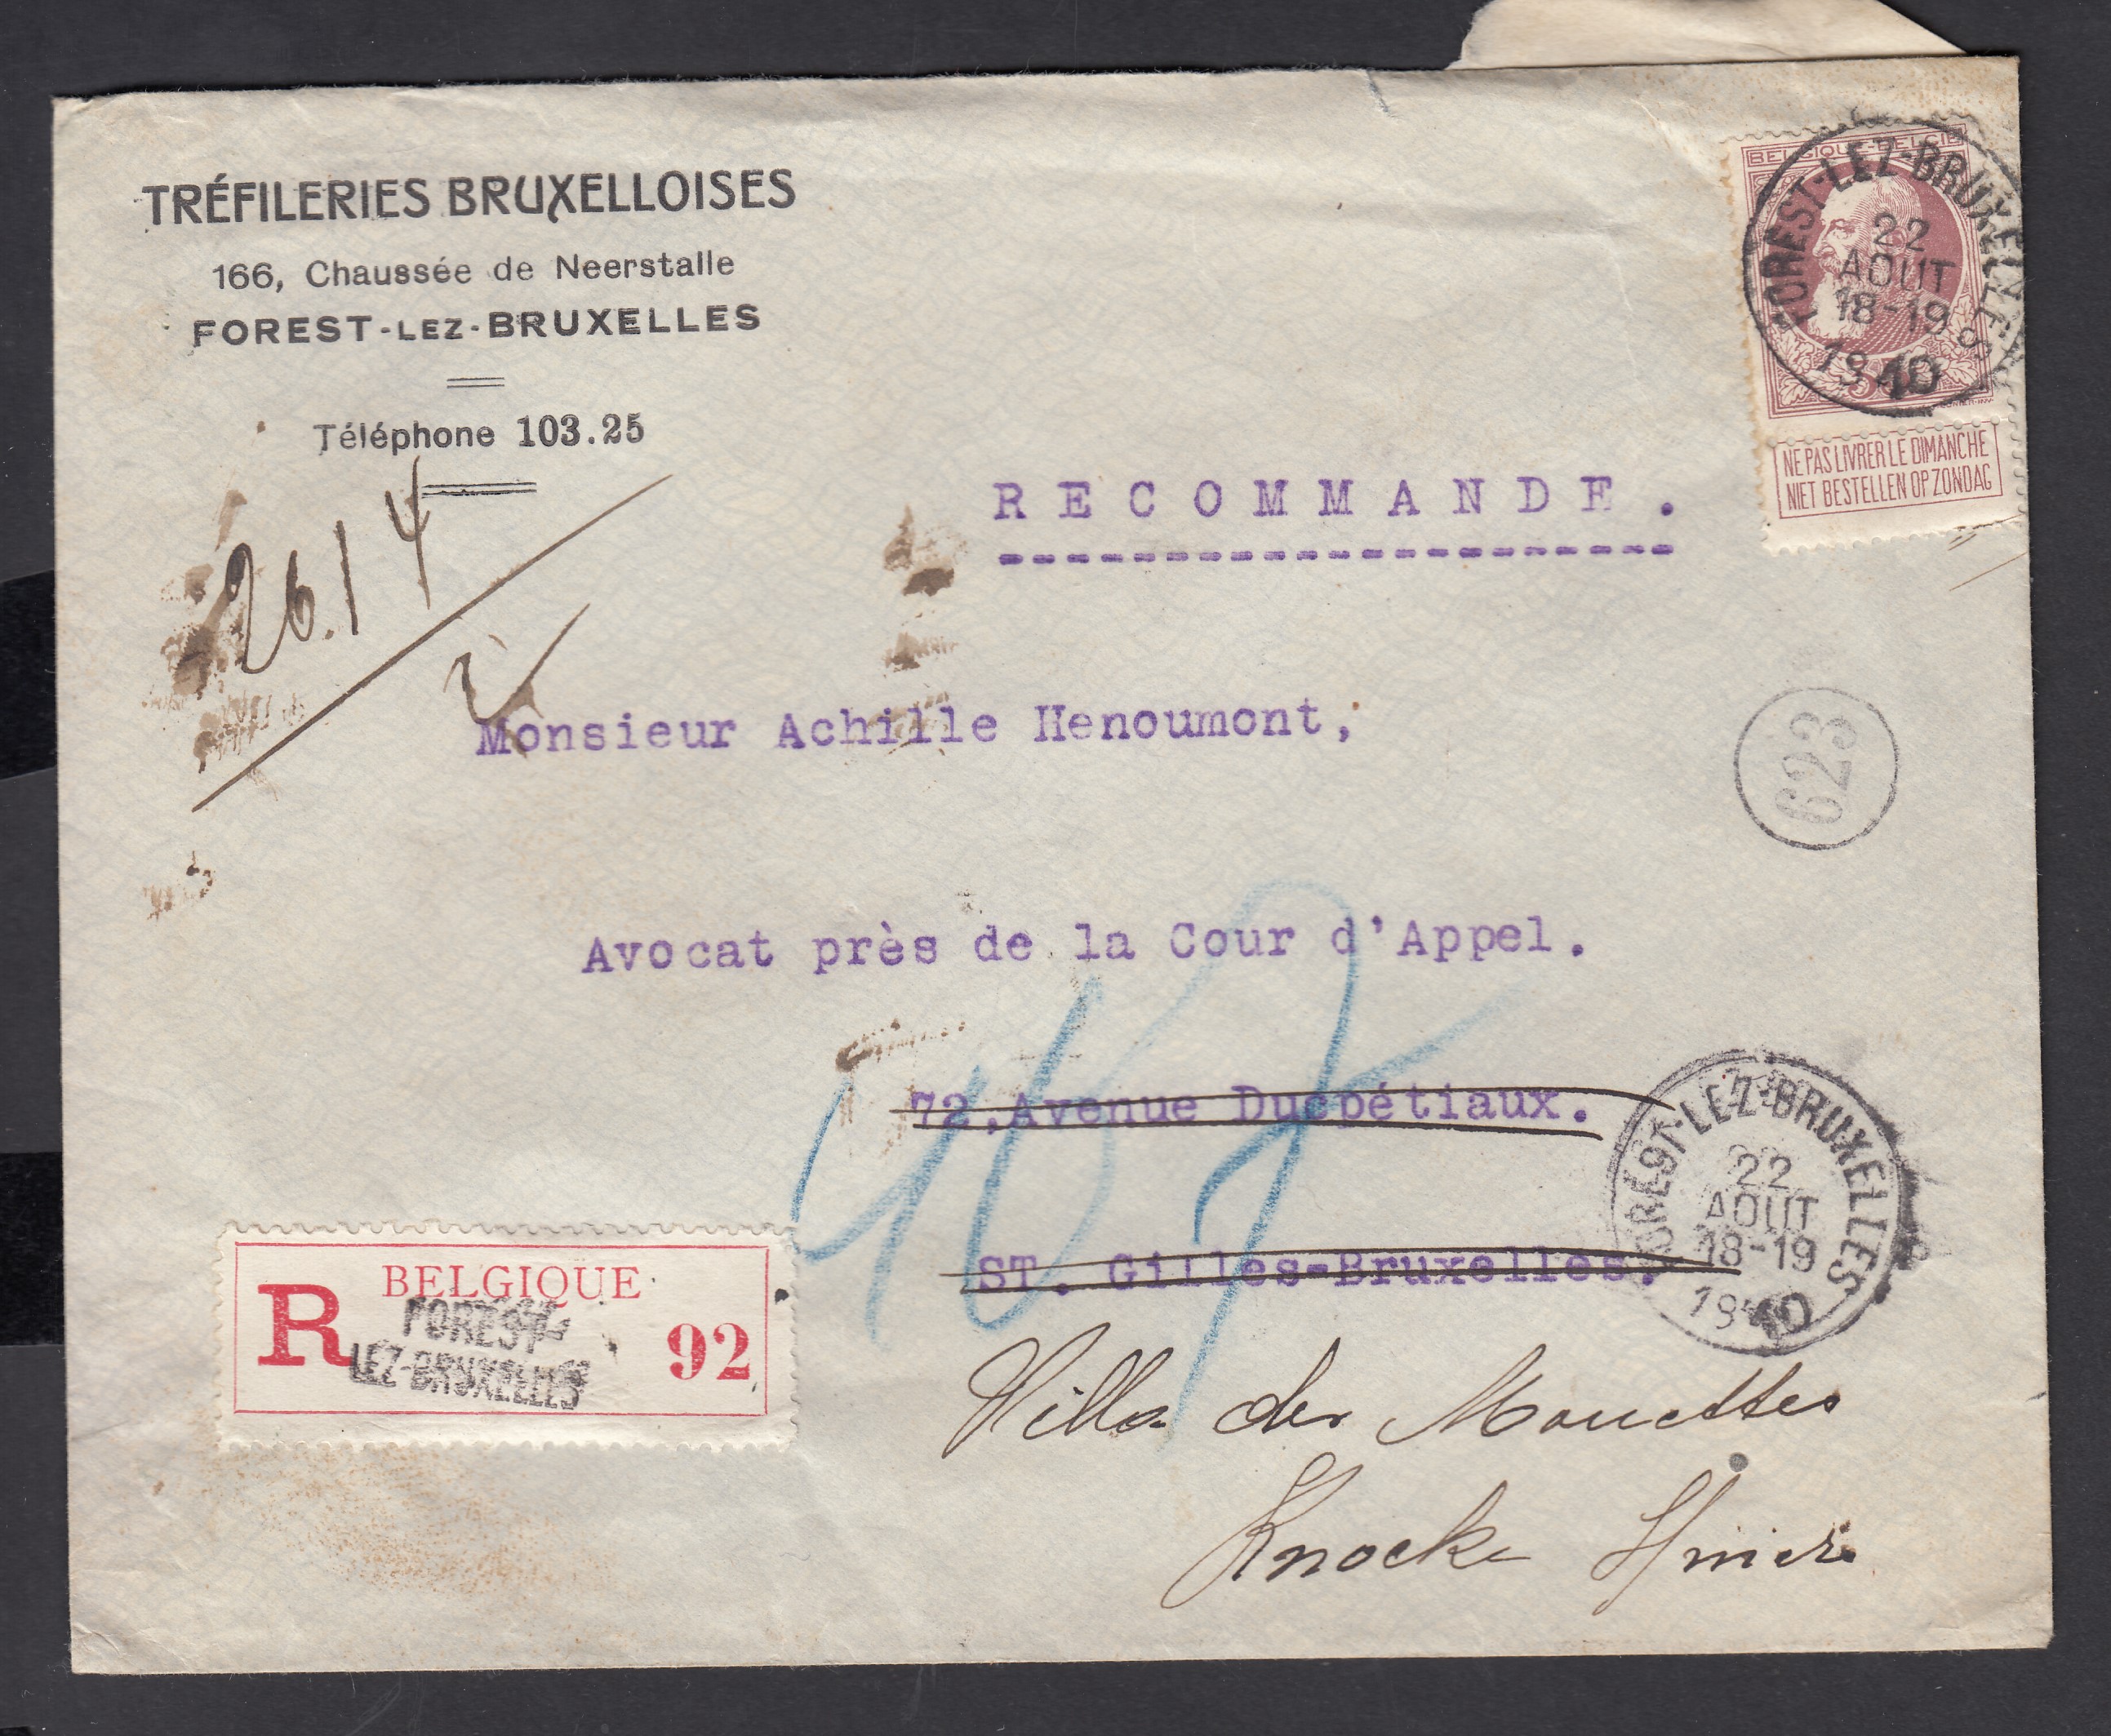 TRÉFILERIES BRUXELLOISES
166, Chaussée de Neerstalle
FOREST-LEZ-BRUXELLES
Téléphone 103.25
BELGIQUE-BELGIË
FOREST-LEZ-BRUXELLES
22
AOUT
18-19
1910
NE PAS LIVRER LE DIMANCHE
NIET BESTELLEN OP ZONDAG
RECOMMANDE.
26.14
623
Monsieur Achille Henoumont,
Avocat près de la Cour d'Appel.
72, Avenue Ducpétiaux.
ST. Gilles-Bruxelles.
FOREST-LEZ-BRUXELLES
22
AOUT
18-19
1910
R BELGIQUE 92
FOREST-
LEZ-BRUXELLES
Villa des Mouettes
Knocke